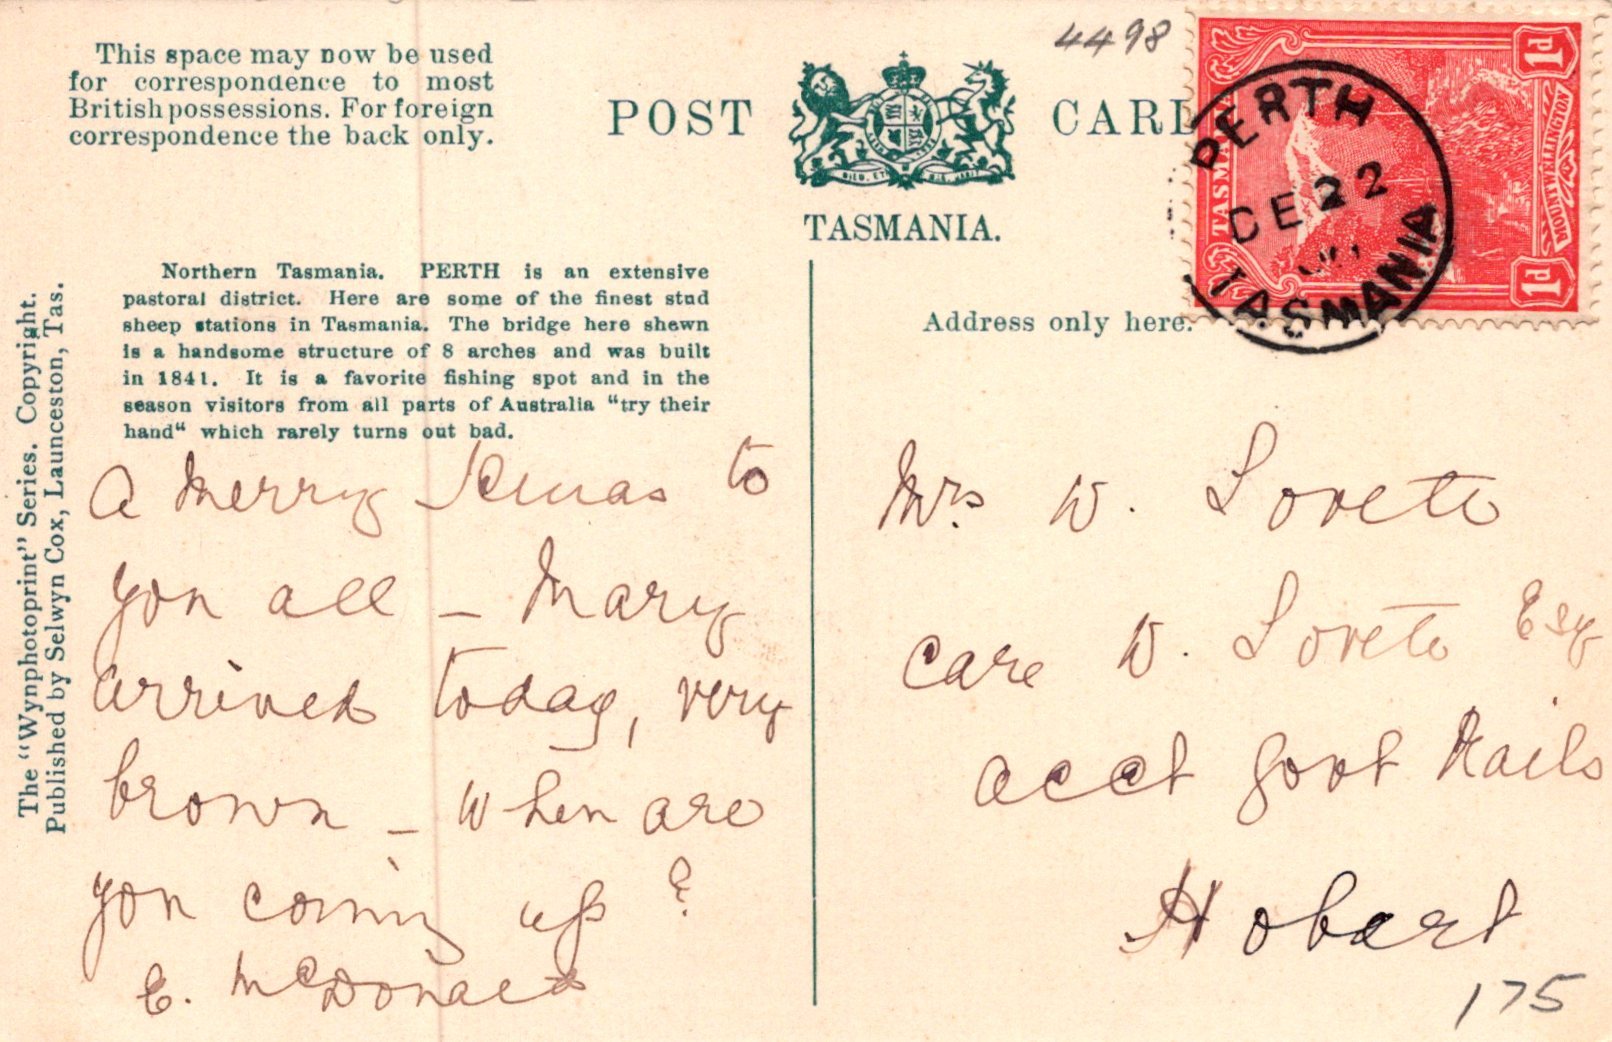 This space may now be used
for correspondence to most
British possessions. For foreign
correspondence the back only.
POST CARD
TASMANIA.
4498
1d
TASMANIA
MOUNT WELLINGTON
1d
PERTH
DE 22
TASMANIA
The "Wynphotoprint" Series. Copyright.
Published by Selwyn Cox, Launceston, Tas.
Northern Tasmania. PERTH is an extensive
pastoral district. Here are some of the finest stud
sheep stations in Tasmania. The bridge here shewn
is a handsome structure of 8 arches and was built
in 1841. It is a favorite fishing spot and in the
season visitors from all parts of Australia "try their
hand" which rarely turns out bad.
Address only here.
A Merry Xmas to
you all – Mary
arrived today, very
brown – When are
you coming up?
E. McDonald
Mrs. W. Lovett
Care W. Lovett Esq
Acct Govt Rails
Hobart
175